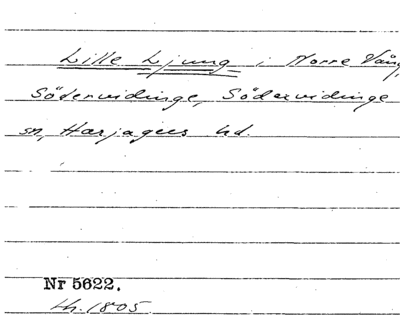 Lille Ljung i Norre Vång,
Södervidinge, Södervidinge
sn, Harjagers hd.
Nr 5622.
th. 1805.